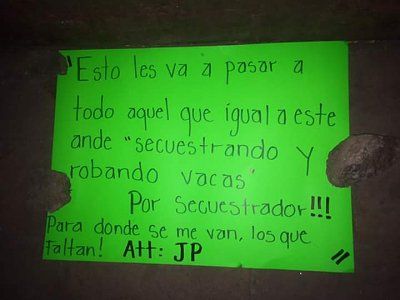 "Esto les va a pasar a
todo aquel que igual a este
ande "secuestrando Y
robando vacas"
Por secuestrador!!!
Para donde se me van, los que
Faltan! Att: JP "